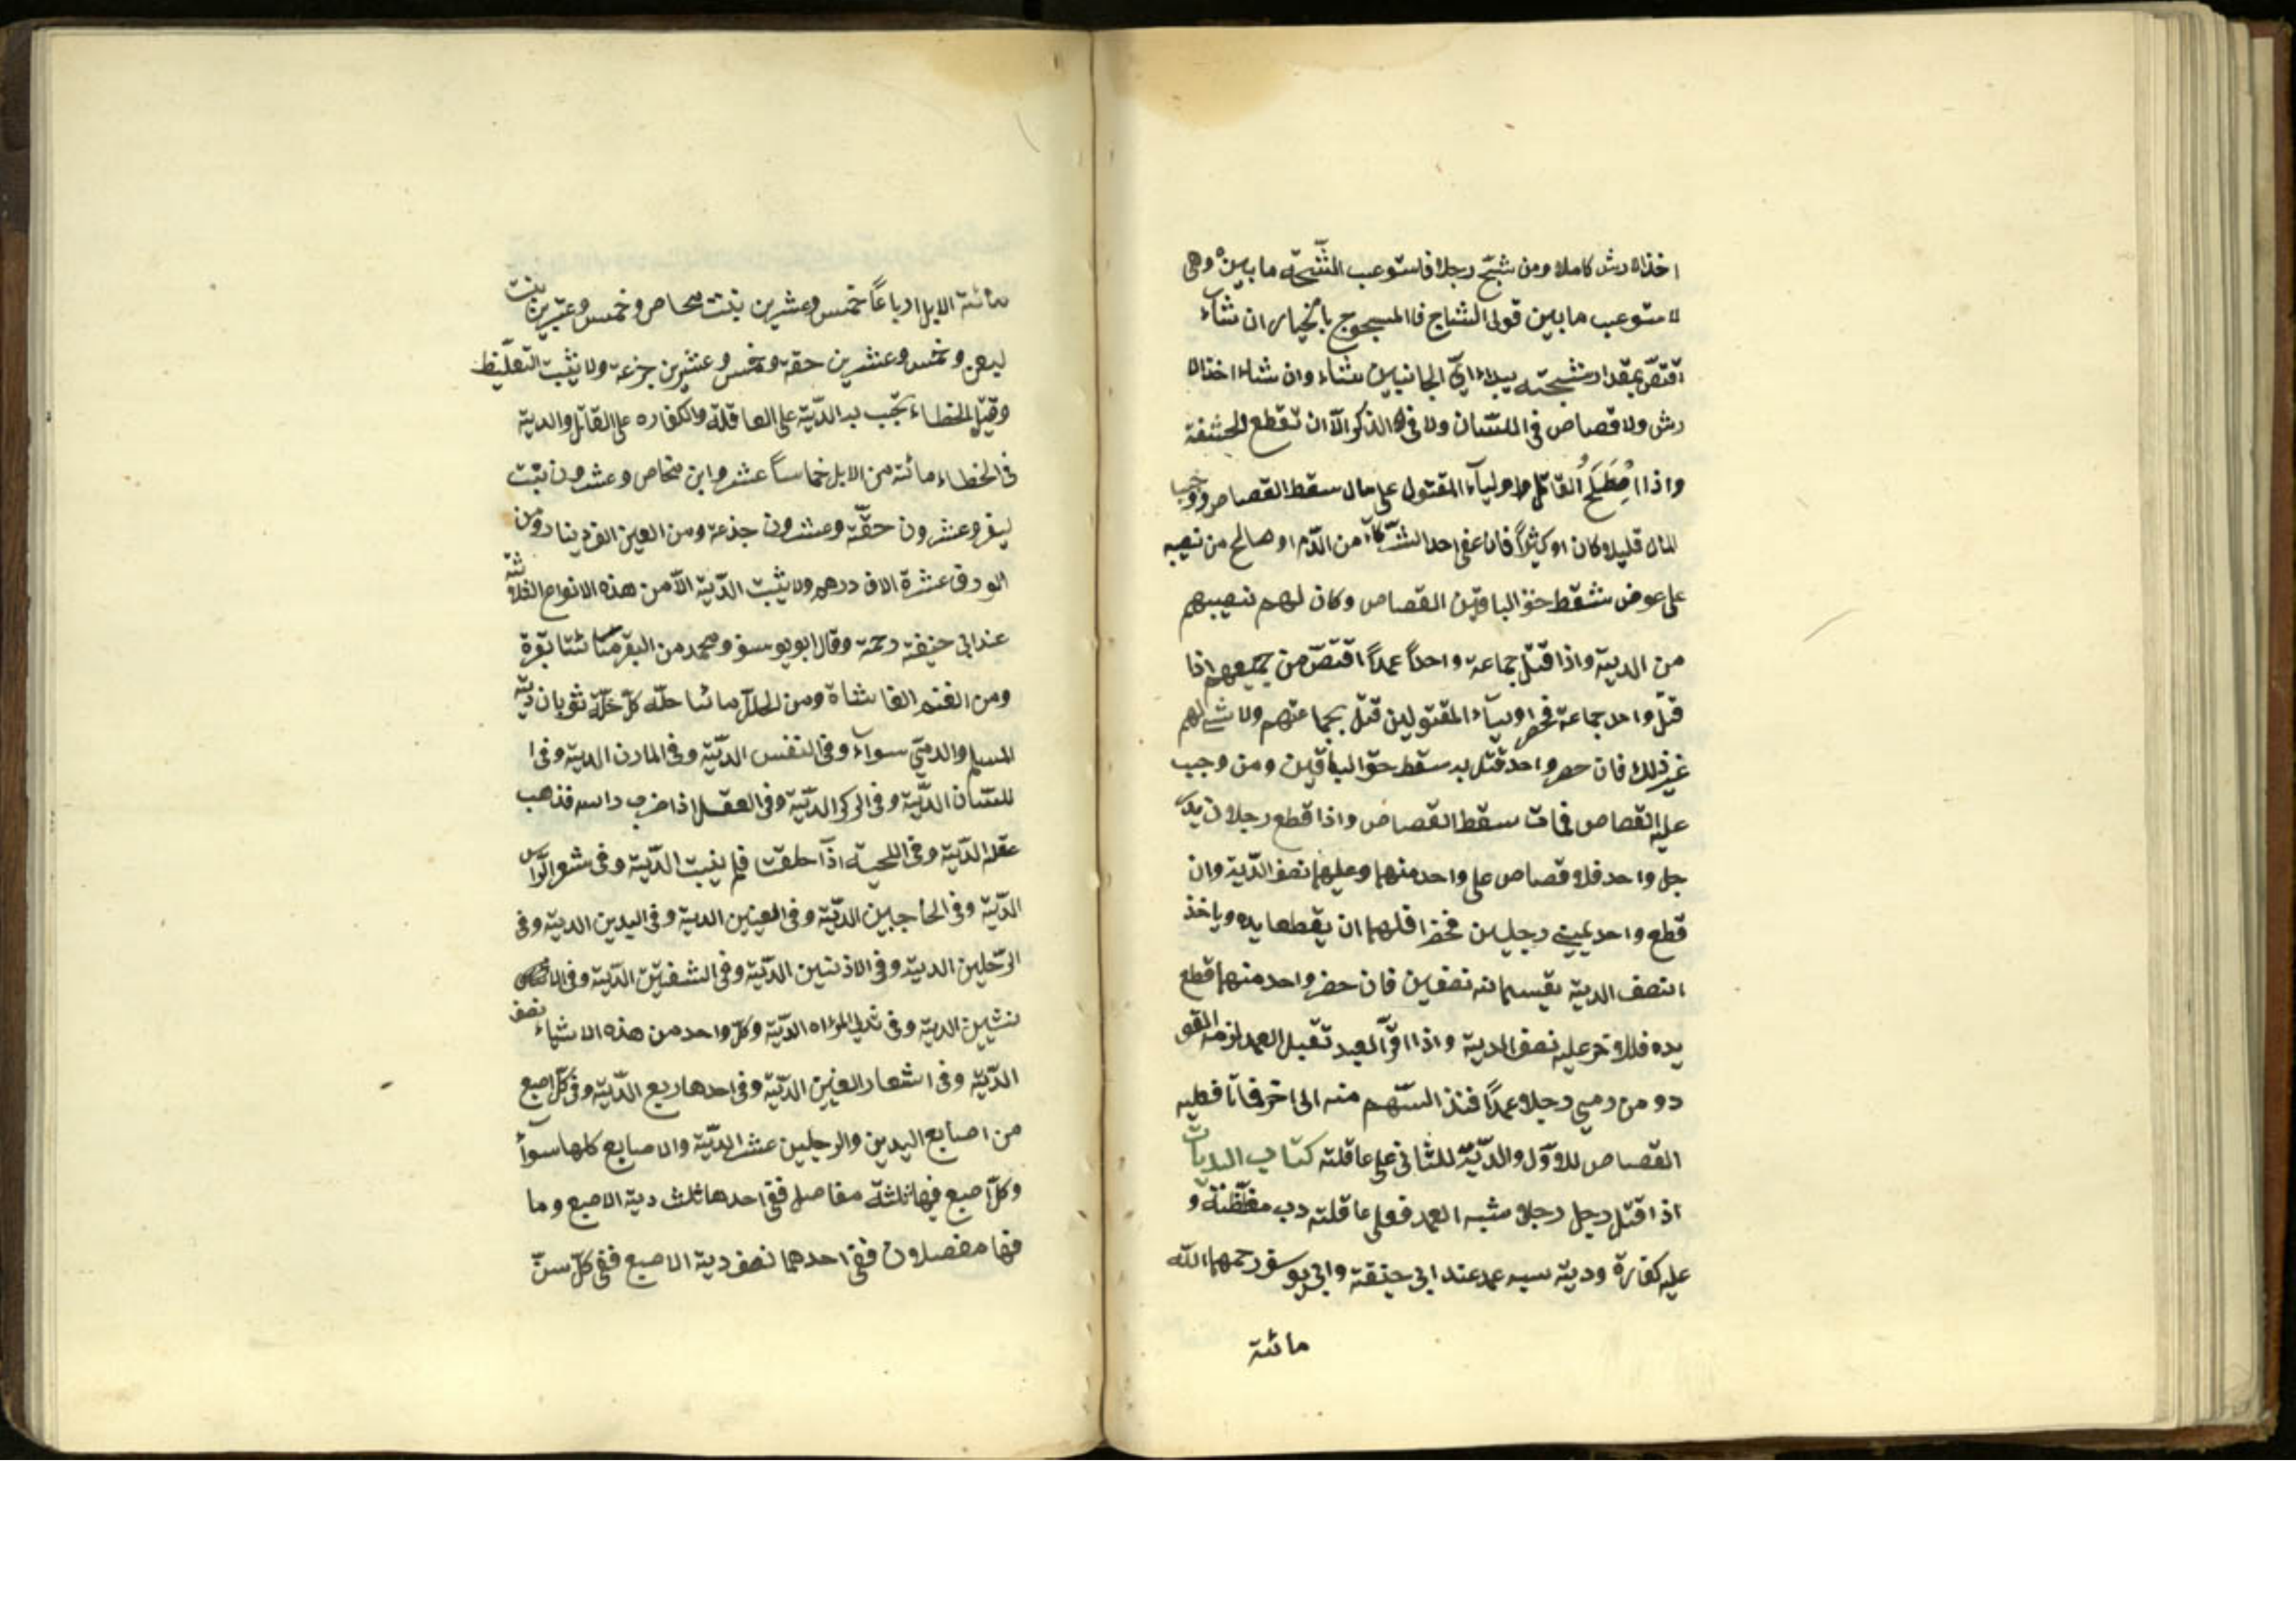 اخذ الارش كاملا ومن شجّ رجلا فاستوعب الشّجّة ما بين وهى
لا ستوعب ما بين قولى الشاج فا المسجوج بالخيار ان شآء
اقتصّ بمقدار شجته يبداء اىّ الجانبين شاء وان شاء اخذ الا
رش ولا قصاص فى اللسان ولا فى الذكر الّا ان تقطع الحشفة
واذا اصْطَلَحُ القاتل واوليآء المقتول على مال سقط القصاص ووجب
المال قليلا وكان او كيثراً فان عفى احد الشّركآء من الدّم او صالح من نصيبه
على عوض شقط حق الباقين القصاص وكان لهم نصيبهم
من الدية واذا قتل جماعة واحداً عمداً اقتصّ من جميعهم اذا
قتل واحد جماعة فحضر اوليآء المقتولين قتل بجماعتهم ولا شئ لهم
غير ذلك فان حضر واحد قتل به سقط حق الباقين ومن وجب
عليه القصاص فمات سقط القصاص واذا قطع رجلان يد
جل واحد فلا قصاص على واحد منهما وعليهما نصف الدّية وان
قطع واحد يمينى رجلين فحضرا فلهما ان يقطعا يده وياخذ
انصف الدية يقسمانه نصفين فان حضر واحد منهما قطع
يده فللاخر عليه نصف الدية واذا اقرّ العبد تقبل العمد لزمه القو
دو من رمى رجلا عمداً فنذ السّهم منه الى اخر فماتا فعليه
القصاص للاوّل والدّيّة للثانى على عاقلته كتاب الديات
اذا قتل رجل رجلا شبه العمد فعلى عاقلته مغلّظة و
عليه كفارة ودية سبه عمد عند ابى حنيفة وابى يوسف رحمهما الله
مائة
مائة الابل ارباعاً خمس وعشرين بنت مخاص وخمس وعشرين بنت
لبون وخمس وعشرين حقة وخمس وعشرين جزعة ولا يثبت التغليظ
وقيل الخطاء تجب به الدّية على العاقلة والكفاره على القاتل والدية
فى الخطاء مائة من الابل خماساً عشر وابن مخاص وعشرون بنت
وعشرون حقّة وعشرون جذعة ومن العين الف دينار ومن
الورق عشرة الاف درهم ولا يثبت الدّية الّا من هذه الانواع الثلاثة
عند ابى حنيفة رحمة وقال ابو يوسف ومحمد من البقر مائتا بقرة
ومن الغنم الفا شاة ومن الحلل مائتا حلّة كلّ حلّة ثوبان دية
المسلم والدمّى سوآء وفى النفس الدّيّة وفى المارن الدية وفى ا
للسان الدّيّة وفى الدّيّة وفى العقل اذا ضرب راسه فذهب
عقله الدّية وفى اللحية اذآ حلقت فلم ينبت الدّية وفى شعر الرّاس
الدّيّة وفى الحاجبين الدّيّة وفى العينين الدية وفى اليدين الدية وفى
الرّجلين الدية وفى الاذنين الدّيّة وفى الشفتين الدّية وفى
نثيين الدية وفى ثدى المراه الدّيّة وكلّ واحد من هذه الاشياء نصف
الدّيّة وفى اشعار العينين الدّيّة وفى احدها ربع الدّيّة وفى كلّ اصبع
من اصابع اليدين والرجلين عشر الدّيّة والاصابع كلها سوآء
وكلّ اصبع فيها ثلثة مفاصل ففى احدها ثلث دية الاصبع وما
فيها مفصلان ففى احدهما نصف دية الاصبع ففى كلّ سنّ